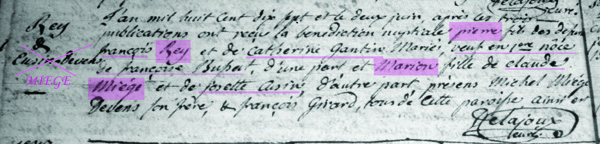 Rey
&
Cusin-Devens
MIEGE
L'an mil huit cent dix sept et le deux juin, après les trois
publications ont reçu la bénédiction nuptiale pierre fils des défunts
françois Rey et de Catherine Gantin Mariés, veuf en 1ere noce
de françoise Buffat, d'une part et Marion fille de claude
Miège et de josette Cusin, d'autre part, présens Michel Miège
Devens son frère, & françois Girard, tous de cette paroisse ainsi est
Delajoux